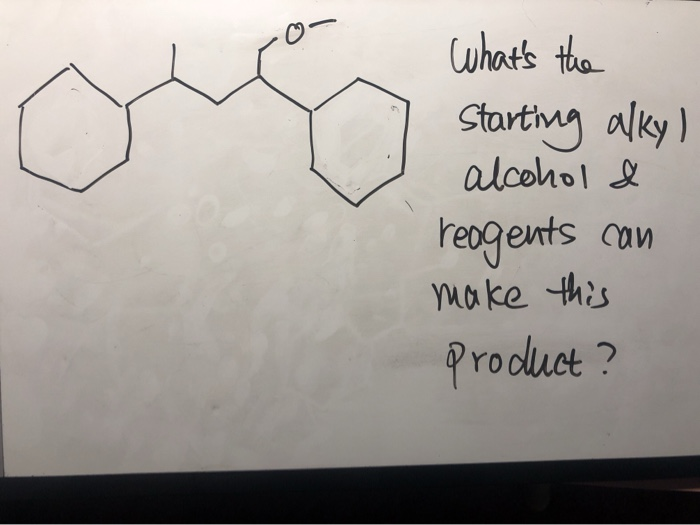 O−
What's the
starting alkyl
alcohol &
reagents can
make this
product?